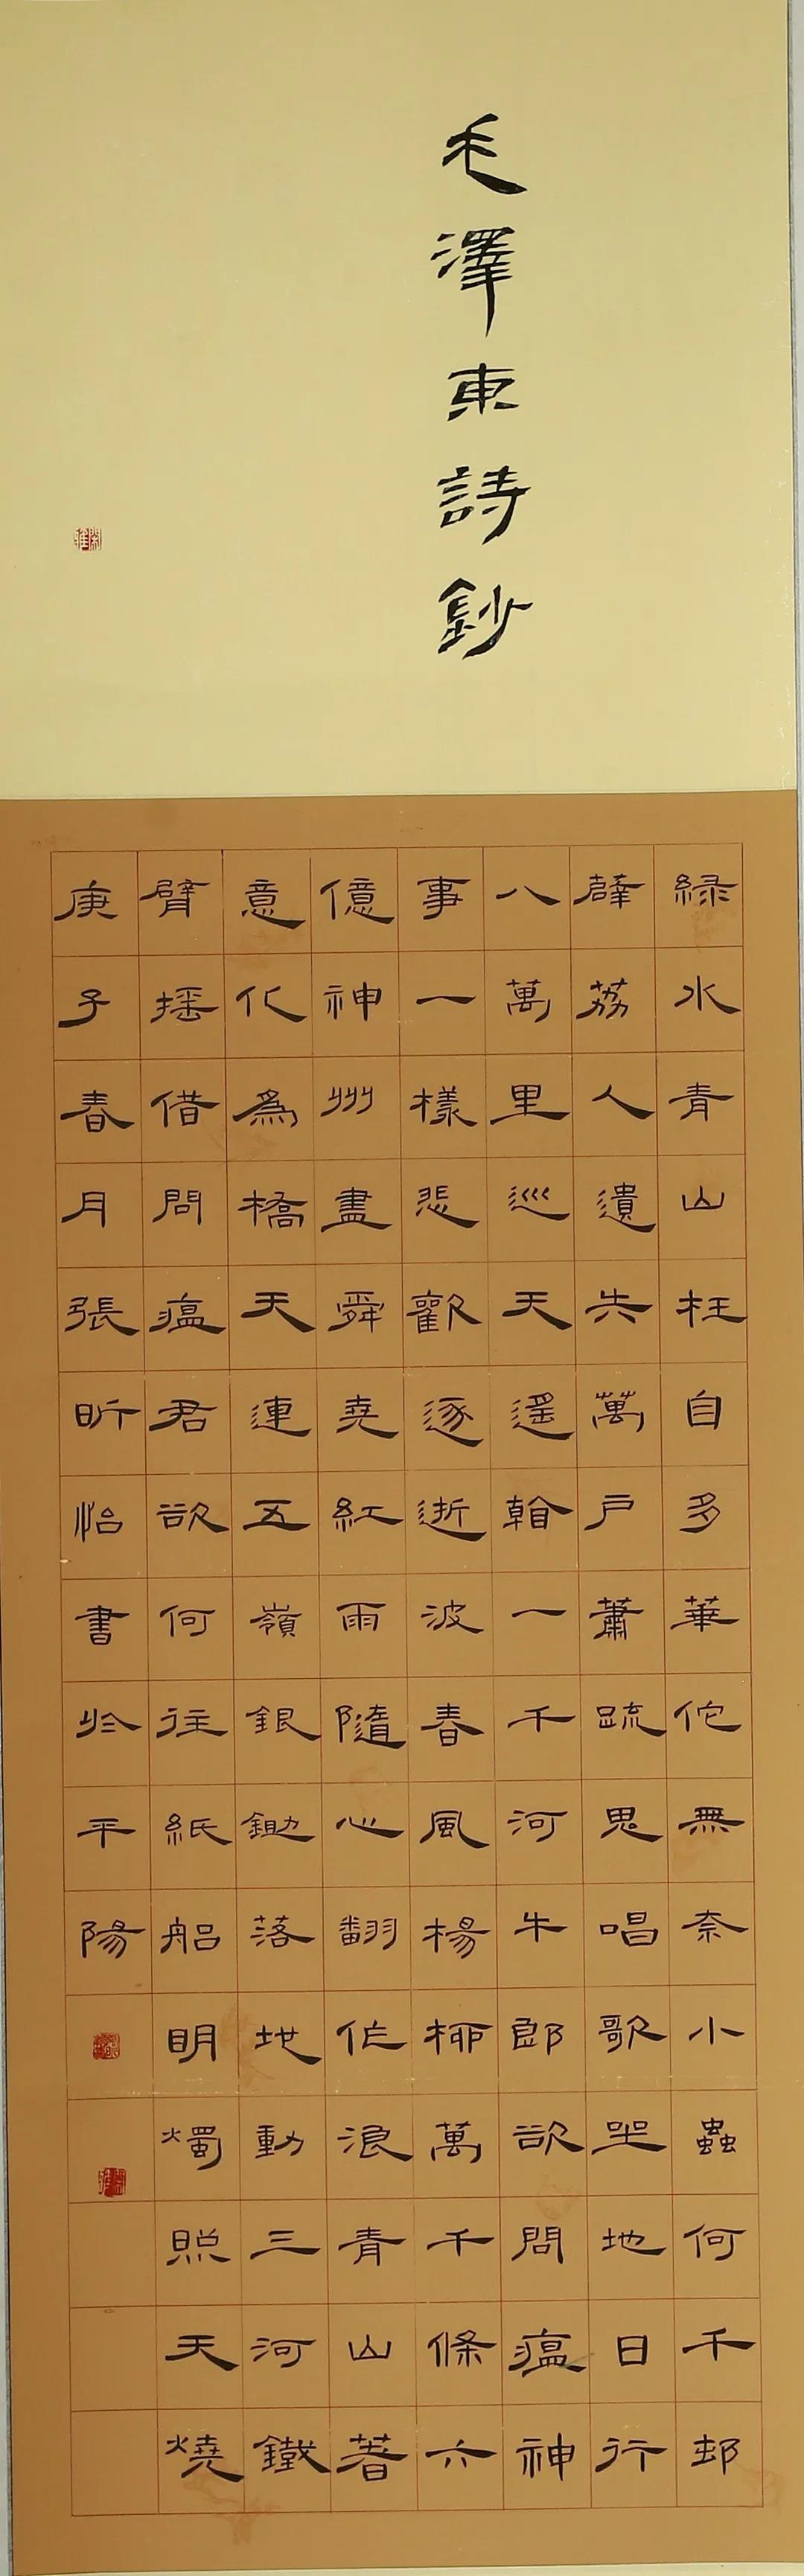 毛澤東詩鈔
緑水青山枉自多華佗無奈小蟲何千邨
薜荔人遺矢萬戶蕭疏鬼唱歌坐地日行
八萬里巡天遥看一千河牛郎欲問瘟神
事一樣悲歡逐逝波春風楊柳萬千條六
億神州盡舜堯紅雨隨心翻作浪青山著
意化為橋天連五嶺銀鋤落地動三河鐵
臂摇借問瘟君欲何往紙船明燭照天燒
庚子春月張昕怡書於平陽